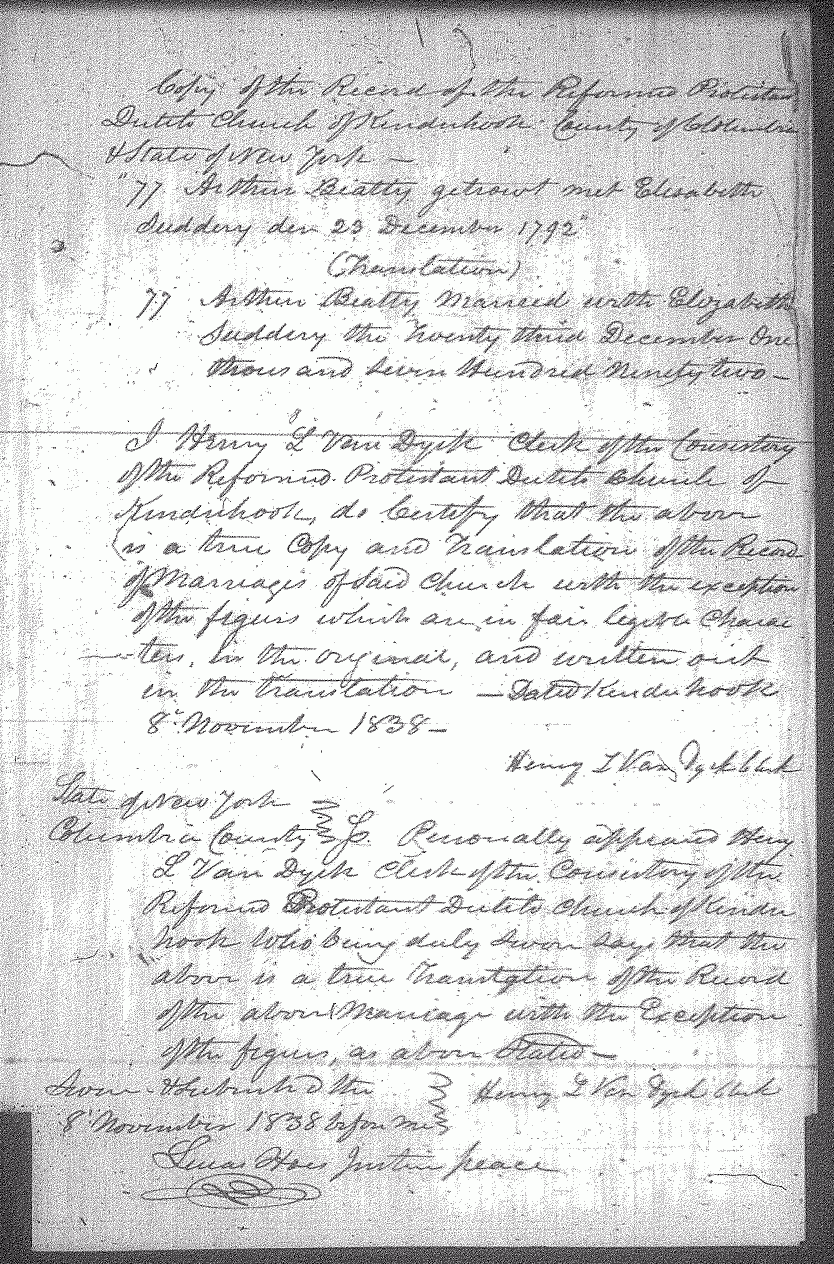 Copy of the Record of the Reformed Protestan
Dutch Church of Kinderhook County of Columbia
& State of New York —
"77 Arthur Beatty getrowt met Elisabeth
Suddery den 23 December 1792"
(Translation)
77 Arthur Beatty Married with Elizabeth
Suddery the Twenty third December One
thousand Seven Hundred Ninety two —
I Henry L Van Dyck Clerk of the Consistory
of the Reformed Protestant Dutch Church of
Kinderhook, do Certify that the above
is a true Copy and Translation of the Record
of Marriages of Said Church with the exception
of the figures which are in fair legible Charac
ters, in the original, and written out
in the translation — Dated Kinderhook
8" November 1838 —
Henry L Van Dyck Clerk
State of New York
Columbia County } S. Personally appeared Henry
L Van Dyck Clerk of the Consistory of the
Reformed Protestant Dutch Church of Kinder
hook Who being duly Sworn says that the
above is a true Translation of the Record
of the above Marriage with the Exception
of the figures, as above Stated —
Sworn & Subscribed the } Henry L Van Dyck Clerk
8" November 1838 before me
Lucas Hoes Justice peace